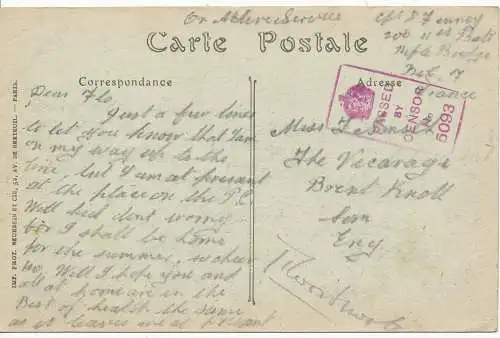 On Active Service
Cpl D Fenney
200 11st Batt
Rifle Brigade
B.E.F
France
Carte Postale
Correspondance
Adresse
PASSED
BY
CENSOR
5093
Dear Flo,
Just a few lines
to let you know that I am
on my way up to the
line, but I am at present
at the place on the P.C.
Well kid dont worry
for I shall be home
for the summer,
Well I hope you and
all at home are in the
Best of health the same
as it leaves me at present
Miss F
The Vicarage
Brent Knoll
Som
Eng
IMP. PHOT. NEURDEIN ET CIE, 52, AV. DE BRETEUIL. — PARIS.